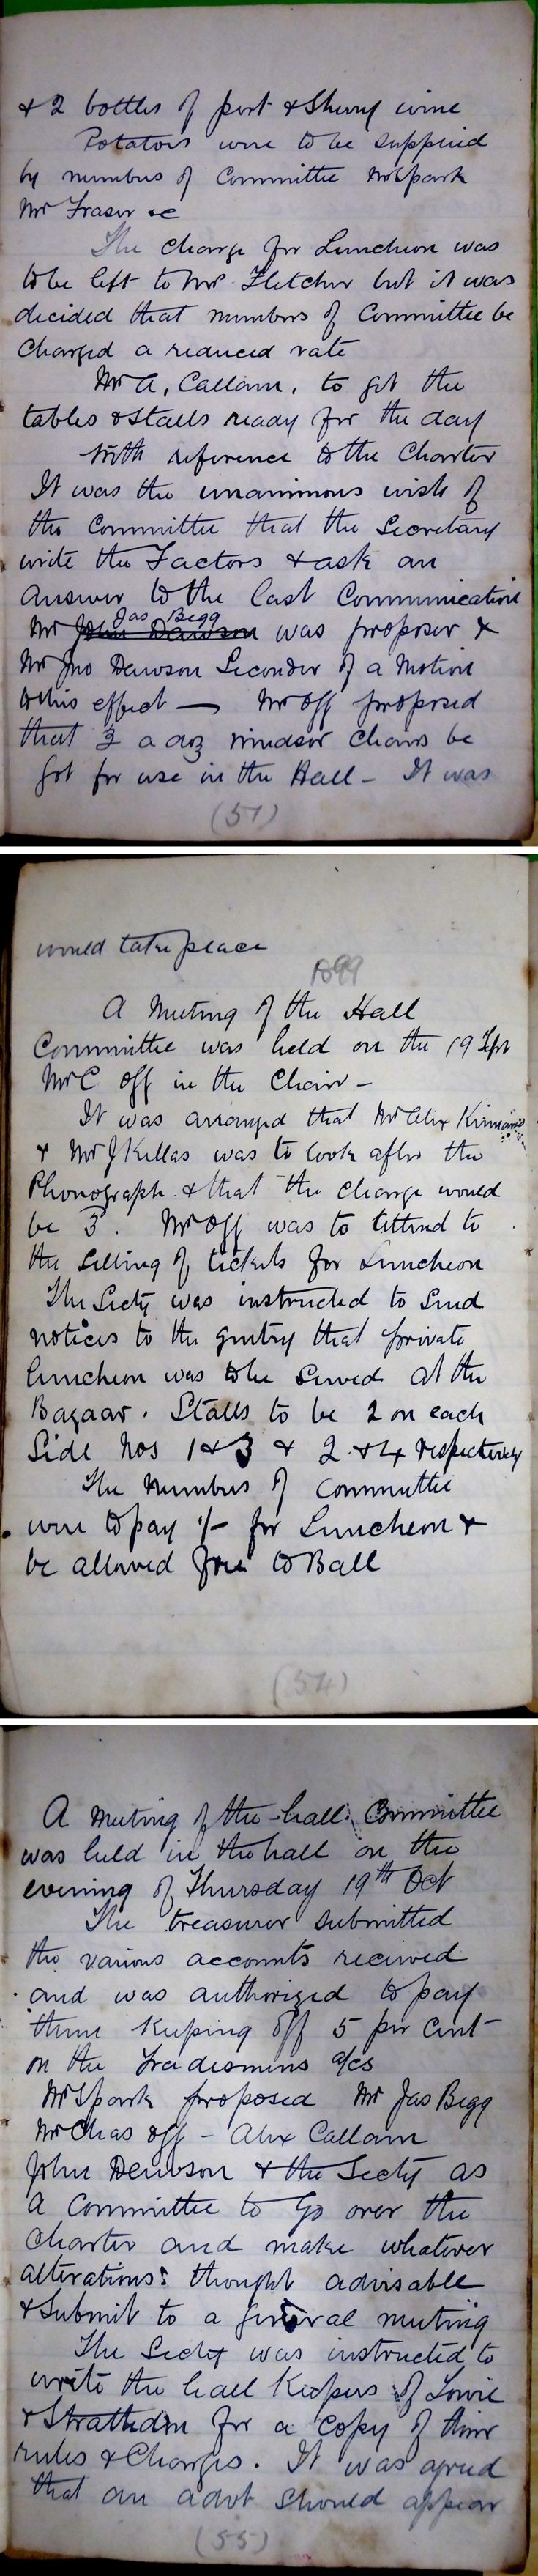 & 2 bottles of port & Sherry wine
Potatoes were to be supplied
by members of Committee Mr Spark
Mr Fraser &c
The charge for Luncheon was
to be left to Mr Fletcher but it was
decided that members of Committee be
Charged a reduced rate
Mr A, Callam, to get the
tables & Stalls ready for the day
With reference to the Charter
It was the unanimous wish of
the Committee that the Secretary
write the Factors & ask an
Answer to the last Communication
Jas Begg
Mr John Dawson was proposer &
Mr Jno Dawson Seconder of a Motion
to this effect — Mr Off proposed
that a doz Windsor Chairs be
got for use in the Hall - It was
(51)
would take place
1899
A Meeting of the Hall
Committee was held on the 19 Sept
Mr C Off in the Chair -
It was arranged that Mr Alix
& Mr J Killas was to look after the
Phonograph & that the charge would
be 3. Mr Off was to attend to
the Selling of tickets for Luncheon
The Secty was instructed to Send
notices to the gentry that private
luncheon was to be Served at the
Bazaar. Stalls to be 2 on each
Side Nos 1 & 3 & 2 & 4 respectively
The Members of Committee
were to pay 1/- for Luncheon &
be allowed free to Ball
(54)
A meeting of the hall Committee
was held in the hall on the
evening of Thursday 19th Oct
The treasurer submitted
the various accounts received
and was authorized to pay
them Keeping off 5 per cent
on the Tradesmens a/cs
Mr Spark proposed Mr Jas Begg
Mr Chas Off - Alex Callam
John Dawson & the Secty as
a Committee to Go over the
Charter and make whatever
alterations thought advisable
& Submit to a general meeting
The Secty was instructed to
write the hall Keepers of Towie
& Strathdon for a copy of their
rules & Charges. It was agreed
that an advt should appear
(55)